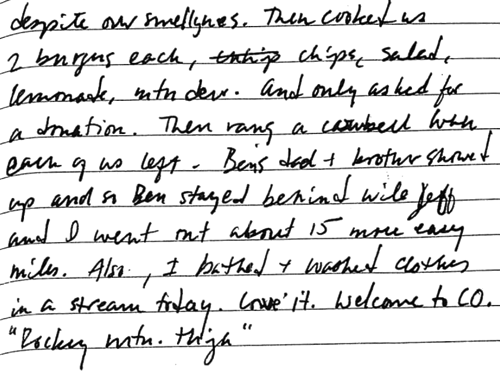 despite our smellyness. Then cooked us
2 burgers each, chips, salad,
lemonade, mtn dew. And only asked for
a donation. Then rang a cowbell when
each of us left. Ben's dad + brother showed
up and so Ben stayed behind wile Jeff
and I went out about 15 more easy
miles. Also, I bathed + washed clothes
in a stream today. Love it. Welcome to CO.
"Rockey mtn. thigh"